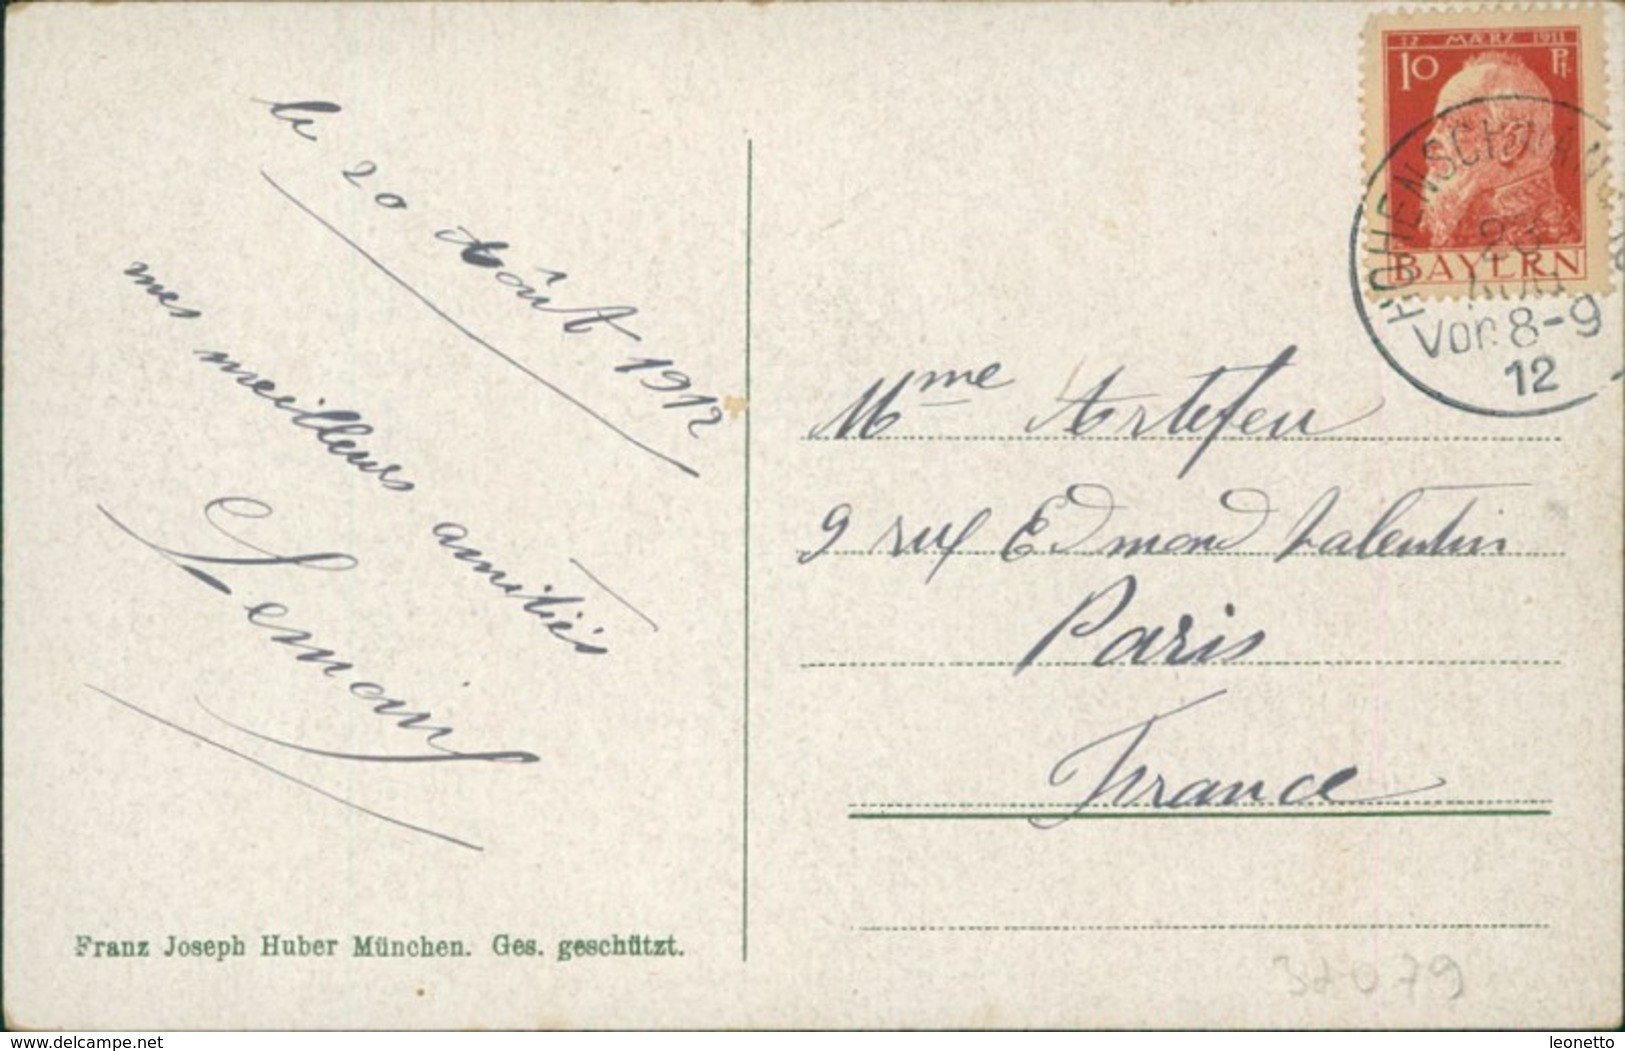 le 20 Août 1912
mes meilleurs amitiés
Lemoin
Franz Joseph Huber München. Ges. geschützt.
12 MÆRZ 1911
10 Pf.
BAYERN
HOHENSCHWANGAU
Vor. 8-9
12
Mme Artefeu
9 rue Edmond Valentin
Paris
France
37079
www.delcampe.net
leonetto